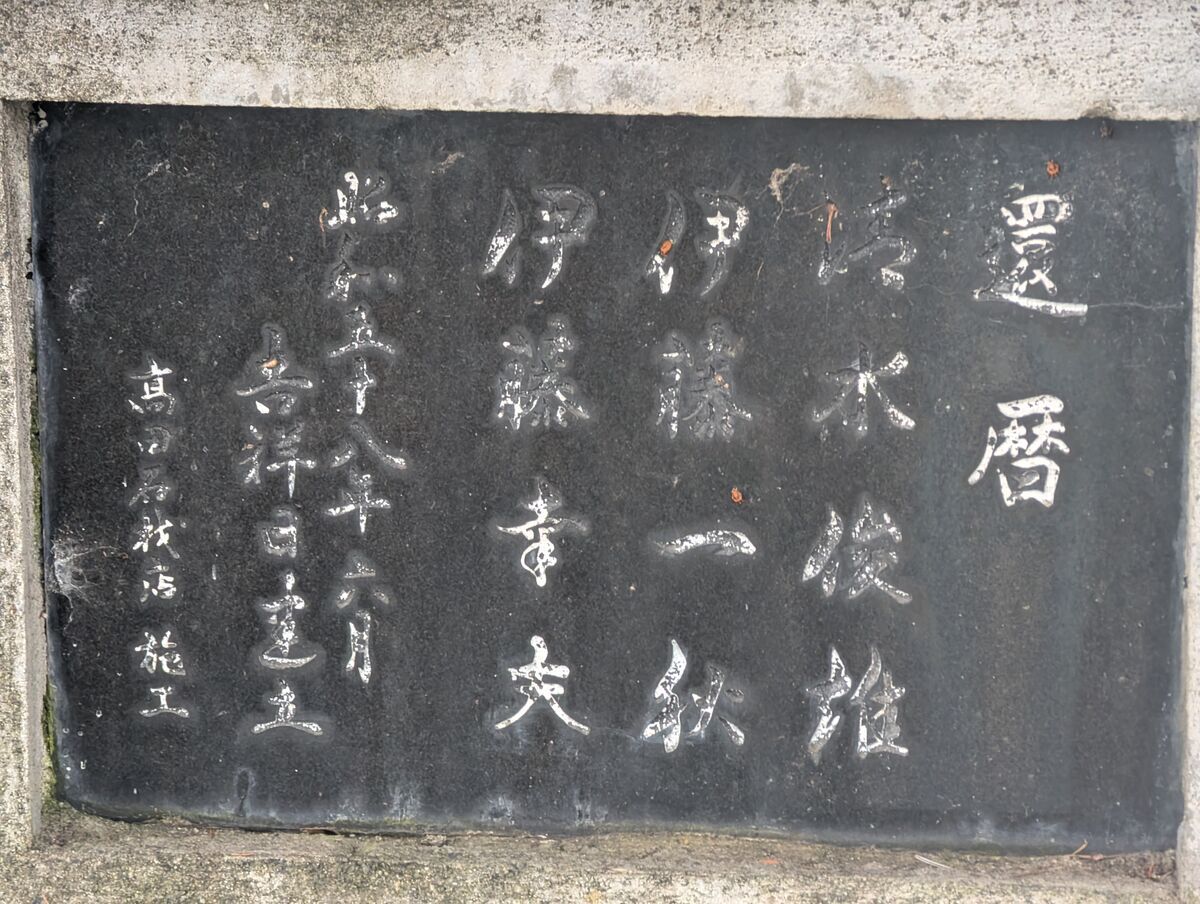 還暦
清水俊雄
伊藤一秋
伊藤幸夫
昭和五十八年六月
吉祥日建立
高田石材店 施工